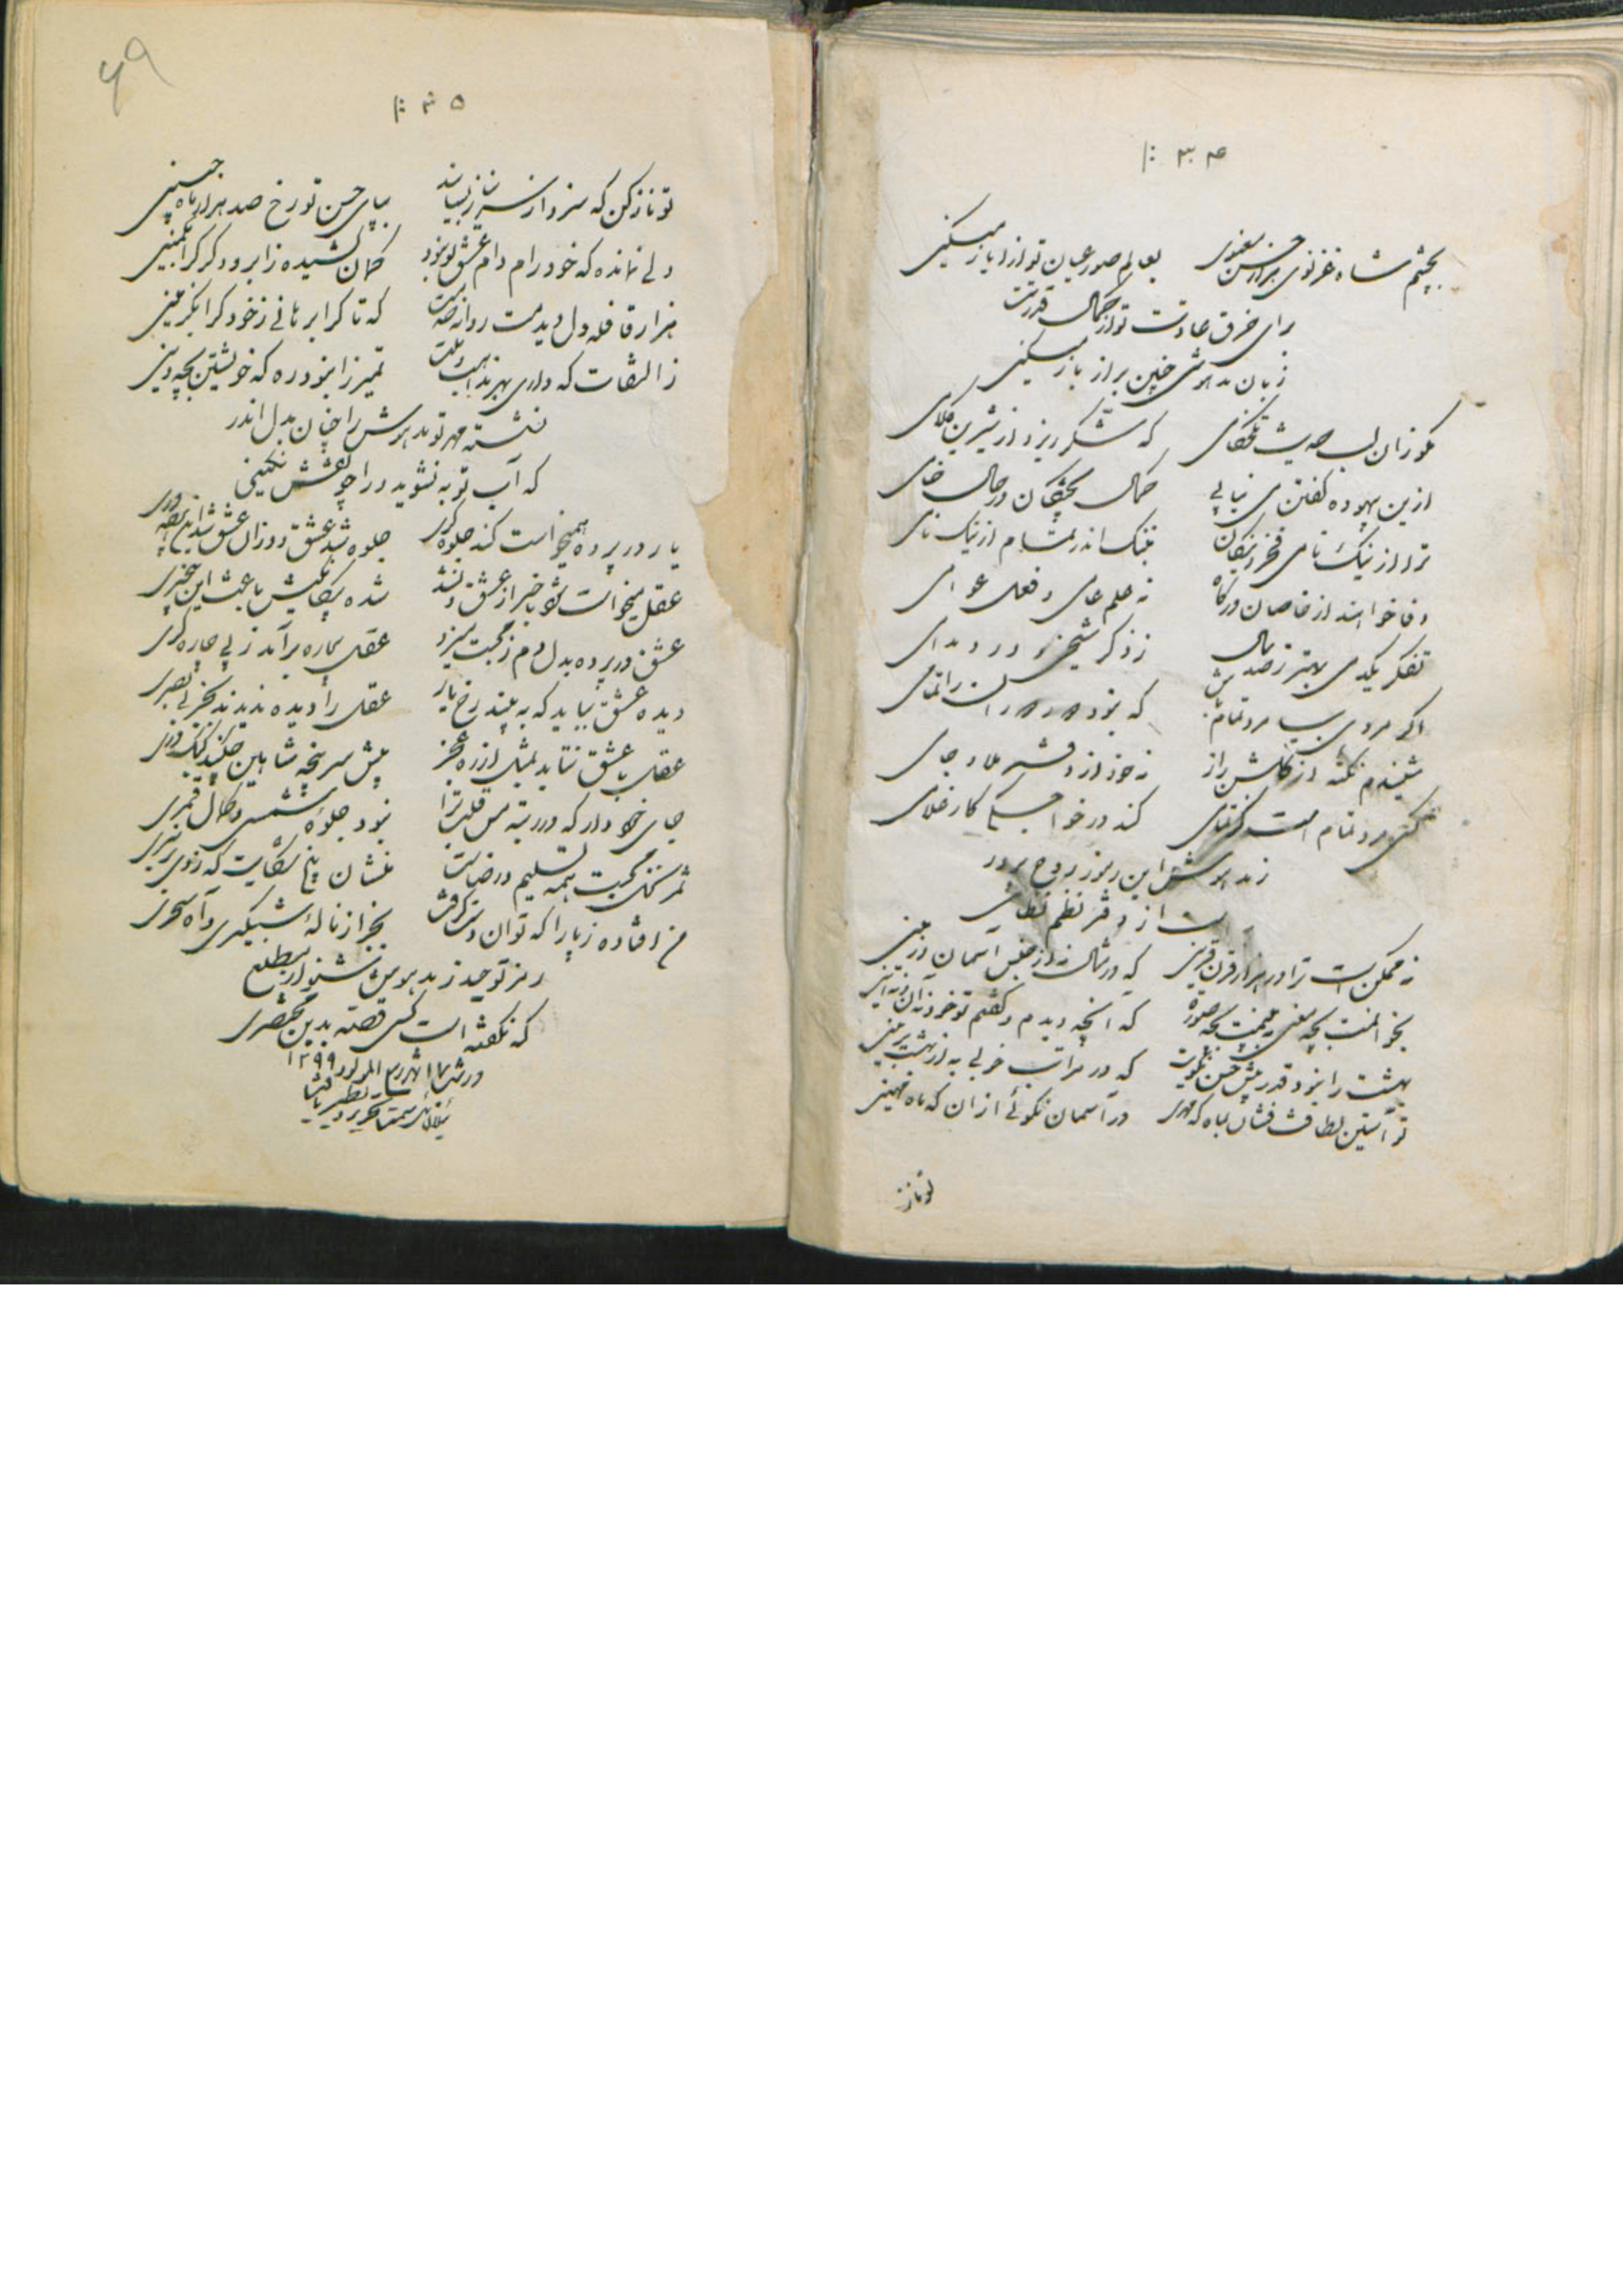 ۳۴
بچشم شاه غزنوی حسن معنوی
بعالم صور عیان تو از ایاز میکنی
برای خرق عادت تو از کمال قدرتت
زبان مدهوشی چنین براز باز میکنی
مکو زان لب حدیث تلخکامی
که شکر ریزد از شیرین کلامی
ازین بیهوده گفتن می نیابی
کمال پختگان در حال خامی
ترا از نیک نامی فخر و نیکان
بننک اندر تمام از نیک نامی
وفا خواهند از خاصان درگاه
نه علم عامی و فعل عوامی
تفکر یکدمی بهتر ز صد سال
ز ذکر
اگر مردی بیا مرد تمام باش
که نبود را تمامی
شنیدم نکته از گلشن راز
نه خود از دفتر ملا جامی
کسی مرد تمام است کز تمامی
کند در خواجگی کار غلامی
ز مدهوش این رموز روح پرور
از دفتر نظم نظامی
نه ممکن است ترا در هزار قرن قرینی
که در شمال نه از جنس آسمان و زمینی
بخوانمت بچه معنی ببینمت بچه صورة
که آنچه دیدم و گفتم تو خود نه آن و نه اینی
بهشت را نبود قدر پیش حسن نکویت
که در مراتب خوبی به از بهشت برینی
تو آستین لطافت فشان بماه که مهری
در آسمان نکوئی از آن که ماه مهینی
تو ناز
۶۹
۳۵
تو ناز کن که سزد ناز نازنینان
بپای حسن تو رخ صد هزار ماه جبینی
دلی نمانده که خود رام دام عشق تو نبود
کمان کشیده ز ابرو دگر کرا بکمینی
هزار قافله دل دیدمت روانه
که تا کرا برهانی ز خود کرا بگزینی
ز التفات که داری بهر مذاهب و ملت
تمیز را نبود ره که خویشتن بچه دینی
نشسته مهر تو مدهوش را چنان بدل اندر
که آب توبه نشوید ورا چو نقش نگینی
یار در پرده همیخواست کند جلوه گری
جلوه شد عشق و وزان عشق شد این پرده دری
عقل میخواست شود با خبر از عشق و نشد
شده بیگانگیش باعث این بیخبری
عشق در پرده بدل دم ز محبت میزد
عقل بیچاره برآمد ز پی چاره گری
دیده عشق بباید که به بیند رخ یار
عقل را دیده ندیدند بجز بی بصری
عقل با عشق نتابد بمثل از ره عجز
پیش سر پنجه شاهین چکند کبک دری
جای خود دار که در رتبه مس قلب ترا
نبود جلوه شمسی و کمال قمری
ثمر نخل محبت همه تسلیم و رضاست
من افتاده ز پا را که توان دست گرفت
بجز از ناله شبگیری و آه سحری
رمز توحید ز مدهوش شنو از مطلع
که نگفته است کسی قصه بدین مختصری
۱۲۹۹